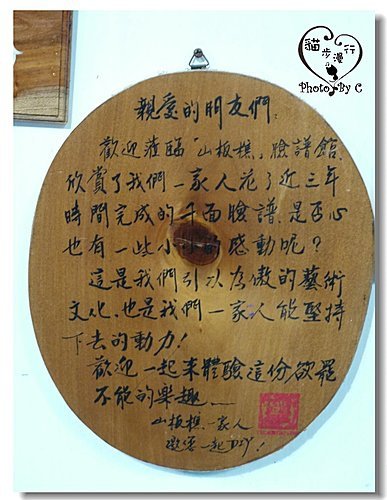 貓步漫行
Photo By C
親愛的朋友們:
歡迎蒞臨「山板樵」臉譜館,
欣賞了我們一家人花了近三年
時間完成的千面臉譜,是否心
也有一些小小的感動呢？
這是我們引以為傲的藝術
文化,也是我們一家人能堅持
下去的動力!
歡迎一起來體驗這份欲罷
不能的樂趣
山板樵一家人
邀您一起DIY!